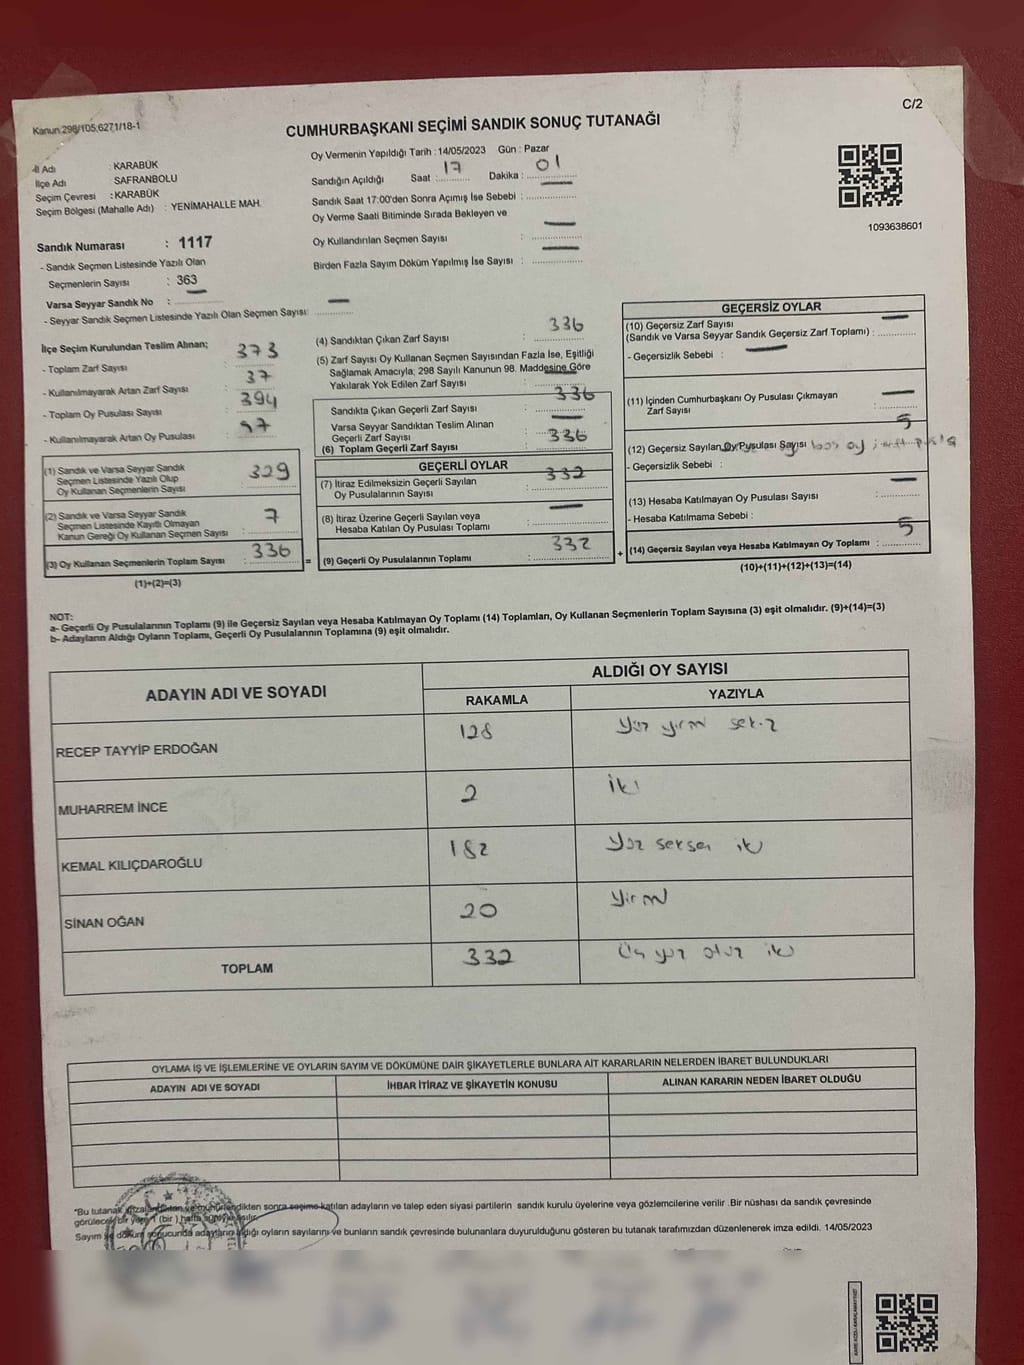 Kanun:298/105,6271/18-1
C/2
CUMHURBAŞKANI SEÇİMİ SANDIK SONUÇ TUTANAĞI
İl Adı : KARABÜK
İlçe Adı : SAFRANBOLU
Seçim Çevresi : KARABÜK
Seçim Bölgesi (Mahalle Adı) : YENİMAHALLE MAH.
Oy Vermenin Yapıldığı Tarih : 14/05/2023 Gün : Pazar
Sandığın Açıldığı Saat : 17 Dakika : 01
Sandık Saat 17:00'den Sonra Açımış İse Sebebi : —
Oy Verme Saati Bitiminde Sırada Bekleyen ve
Oy Kullandırılan Seçmen Sayısı : —
Birden Fazla Sayım Döküm Yapılmış İse Sayısı : —
1093638601
Sandık Numarası : 1117
- Sandık Seçmen Listesinde Yazılı Olan
Seçmenlerin Sayısı : 363
Varsa Seyyar Sandık No : —
- Seyyar Sandık Seçmen Listesinde Yazılı Olan Seçmen Sayısı: —
İlçe Seçim Kurulundan Teslim Alınan;
- Toplam Zarf Sayısı : 373
- Kullanılmayarak Artan Zarf Sayısı : 37
- Toplam Oy Pusulası Sayısı : 394
- Kullanılmayarak Artan Oy Pusulası : 57
(1) Sandık ve Varsa Seyyar Sandık
Seçmen Listesinde Yazılı Olup
Oy Kullanan Seçmenlerin Sayısı : 329
(2) Sandık ve Varsa Seyyar Sandık
Seçmen Listesinde Kayıtlı Olmayan
Kanun Gereği Oy Kullanan Seçmen Sayısı : 7
(3) Oy Kullanan Seçmenlerin Toplam Sayısı : 336
(1)+(2)=(3)
(4) Sandıktan Çıkan Zarf Sayısı : 336
(5) Zarf Sayısı Oy Kullanan Seçmen Sayısından Fazla İse, Eşitliği
Sağlamak Amacıyla; 298 Sayılı Kanunun 98. Maddesine Göre
Yakılarak Yok Edilen Zarf Sayısı : —
Sandıkta Çıkan Geçerli Zarf Sayısı : 336
Varsa Seyyar Sandıktan Teslim Alınan
Geçerli Zarf Sayısı : —
(6) Toplam Geçerli Zarf Sayısı : 336
GEÇERLİ OYLAR
(7) İtiraz Edilmeksizin Geçerli Sayılan
Oy Pusulalarının Sayısı : 332
(8) İtiraz Üzerine Geçerli Sayılan veya
Hesaba Katılan Oy Pusulası Toplamı : —
= (9) Geçerli Oy Pusulalarının Toplamı : 332
GEÇERSİZ OYLAR
(10) Geçersiz Zarf Sayısı
(Sandık ve Varsa Seyyar Sandık Geçersiz Zarf Toplamı) : —
- Geçersizlik Sebebi : —
(11) İçinden Cumhurbaşkanı Oy Pusulası Çıkmayan
Zarf Sayısı : —
(12) Geçersiz Sayılan Oy Pusulası Sayısı 5
- Geçersizlik Sebebi :
(13) Hesaba Katılmayan Oy Pusulası Sayısı : —
- Hesaba Katılmama Sebebi :
+ (14) Geçersiz Sayılan veya Hesaba Katılmayan Oy Toplamı : 5
(10)+(11)+(12)+(13)=(14)
NOT:
a- Geçerli Oy Pusulalarının Toplamı (9) ile Geçersiz Sayılan veya Hesaba Katılmayan Oy Toplamı (14) Toplamları, Oy Kullanan Seçmenlerin Toplam Sayısına (3) eşit olmalıdır. (9)+(14)=(3)
b- Adayların Aldığı Oyların Toplamı, Geçerli Oy Pusulalarının Toplamına (9) eşit olmalıdır.
ADAYIN ADI VE SOYADI
ALDIĞI OY SAYISI
RAKAMLA YAZIYLA
RECEP TAYYİP ERDOĞAN 128 Yüz yirmi sekiz
MUHARREM İNCE 2 İki
KEMAL KILIÇDAROĞLU 182 Yüz seksen iki
SİNAN OĞAN 20 Yirmi
TOPLAM 332 Üç yüz otuz iki
OYLAMA İŞ VE İŞLEMLERİNE VE OYLARIN SAYIM VE DÖKÜMÜNE DAİR ŞİKAYETLERLE BUNLARA AİT KARARLARIN NELERDEN İBARET BULUNDUKLARI
ADAYIN ADI VE SOYADI İHBAR İTİRAZ VE ŞİKAYETİN KONUSU ALINAN KARARIN NEDEN İBARET OLDUĞU
*Bu tutanak imzalandıktan ve mühürlendikten sonra seçime katılan adayların ve talep eden siyasi partilerin sandık kurulu üyelerine veya gözlemcilerine verilir. Bir nüshası da sandık çevresinde
görülecek bir yere 1 (bir) hafta süreyle asılır.
Sayım ve döküm sonucunda adayların aldığı oyların sayılarını ve bunların sandık çevresinde bulunanlara duyurulduğunu gösteren bu tutanak tarafımızdan düzenlenerek imza edildi. 14/05/2023